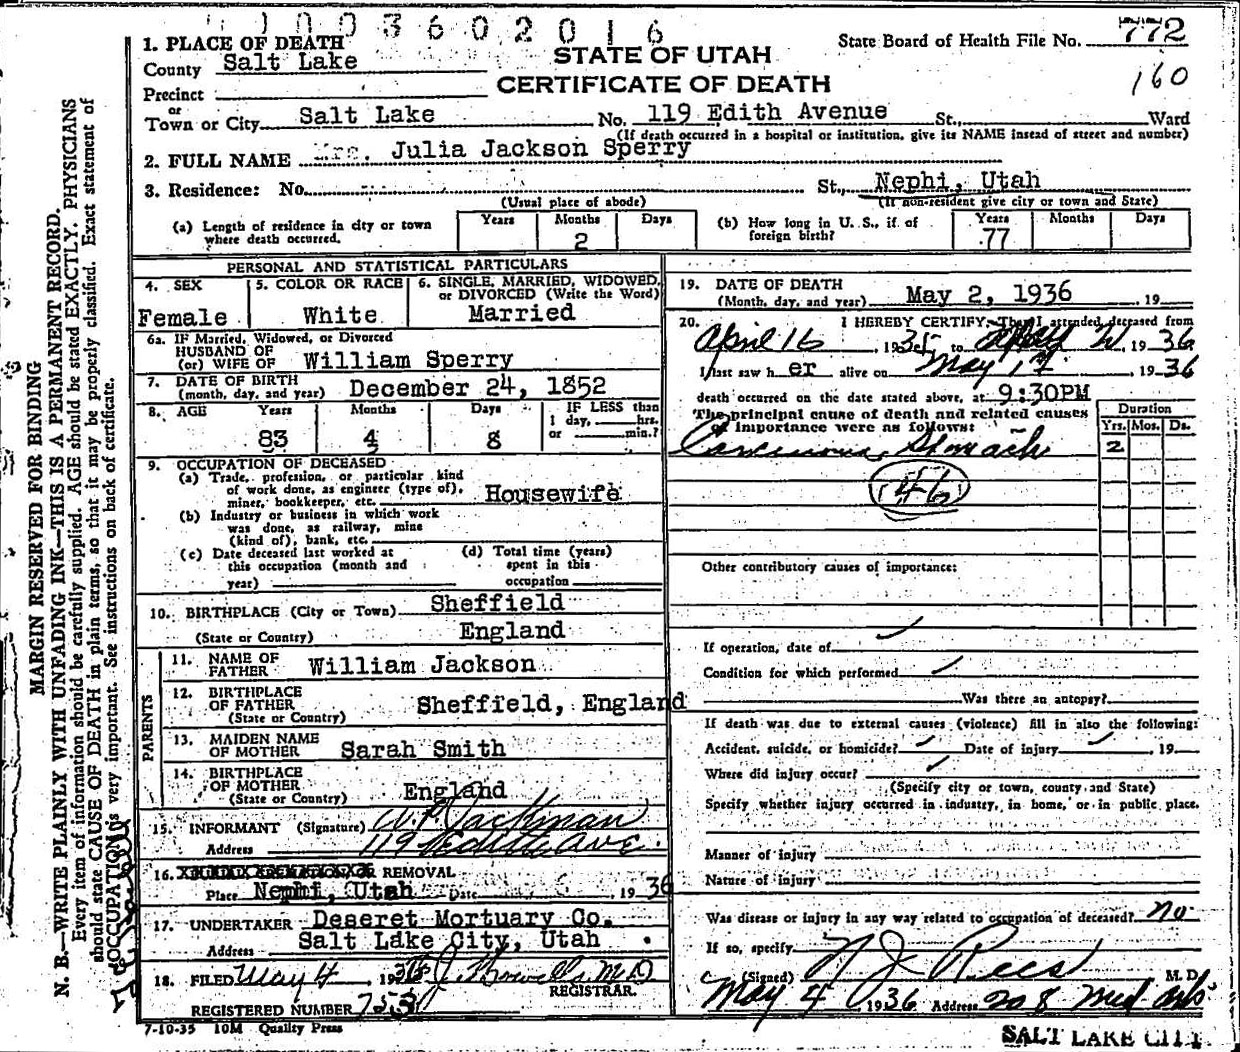 1003602016
State Board of Health File No. 772
160
STATE OF UTAH
CERTIFICATE OF DEATH
1. PLACE OF DEATH
County Salt Lake
Precinct
or
Town or City Salt Lake No. 119 Edith Avenue St., Ward
(If death occurred in a hospital or institution, give its NAME instead of street and number)
2. FULL NAME Mrs. Julia Jackson Sperry
3. Residence: No. St., Nephi, Utah
(Usual place of abode) (If non-resident give city or town and State)
(a) Length of residence in city or town where death occurred. Years Months 2 Days
(b) How long in U. S., if of foreign birth? Years 77 Months Days
PERSONAL AND STATISTICAL PARTICULARS
4. SEX Female
5. COLOR OR RACE White
6. SINGLE, MARRIED, WIDOWED, or DIVORCED (Write the Word) Married
6a. IF Married, Widowed, or Divorced
HUSBAND OF
(or) WIFE OF William Sperry
7. DATE OF BIRTH
(month, day, and year) December 24, 1852
8. AGE Years 83 Months 4 Days 8 IF LESS than 1 day, hrs. or min.?
9. OCCUPATION OF DECEASED
(a) Trade, profession, or particular kind of work done, as engineer (type of), miner, bookkeeper, etc. Housewife
(b) Industry or business in which work was done, as railway, mine (kind of), bank, etc.
(c) Date deceased last worked at this occupation (month and year)
(d) Total time (years) spent in this occupation
10. BIRTHPLACE (City or Town) Sheffield
(State or Country) England
PARENTS
11. NAME OF FATHER William Jackson
12. BIRTHPLACE OF FATHER Sheffield, England
(State or Country)
13. MAIDEN NAME OF MOTHER Sarah Smith
14. BIRTHPLACE OF MOTHER England
(State or Country)
15. INFORMANT (Signature) Jackman
Address 119 Edith Ave.
16. REMOVAL
Place Nephi, Utah Date 1936
17. UNDERTAKER Deseret Mortuary Co.
Address Salt Lake City, Utah
18. FILED May 4, 1936 M.D
REGISTRAR.
REGISTERED NUMBER 753
7-10-35 10M Quality Press
19. DATE OF DEATH
(Month, day, and year) May 2, 1936 , 19
20. I HEREBY CERTIFY, That I attended deceased from
April 16, 1935, to 1936
I last saw her alive on May 1st, 1936
death occurred on the date stated above, at 9:30PM
The principal cause of death and related causes of importance were as follows:
Duration
Yrs. Mos. Ds.
Carcinoma Stomach 2
46
Other contributory causes of importance:
If operation, date of
Condition for which performed
Was there an autopsy?
If death was due to external causes (violence) fill in also the following:
Accident, suicide, or homicide? Date of injury 19
Where did injury occur?
(Specify city or town, county and State)
Specify whether injury occurred in industry, in home, or in public place.
Manner of injury
Nature of injury
Was disease or injury in any way related to occupation of deceased? no
If so, specify
(Signed) N J Rees M. D.
May 4 1936 Address 208 Med Arts
SALT LAKE CITY
MARGIN RESERVED FOR BINDING
N. B.—WRITE PLAINLY WITH UNFADING INK—THIS IS A PERMANENT RECORD.
Every item of information should be carefully supplied. AGE should be stated EXACTLY. PHYSICIANS
should state CAUSE OF DEATH in plain terms, so that it may be properly classified. Exact statement of
OCCUPATION is very important. See instructions on back of certificate.